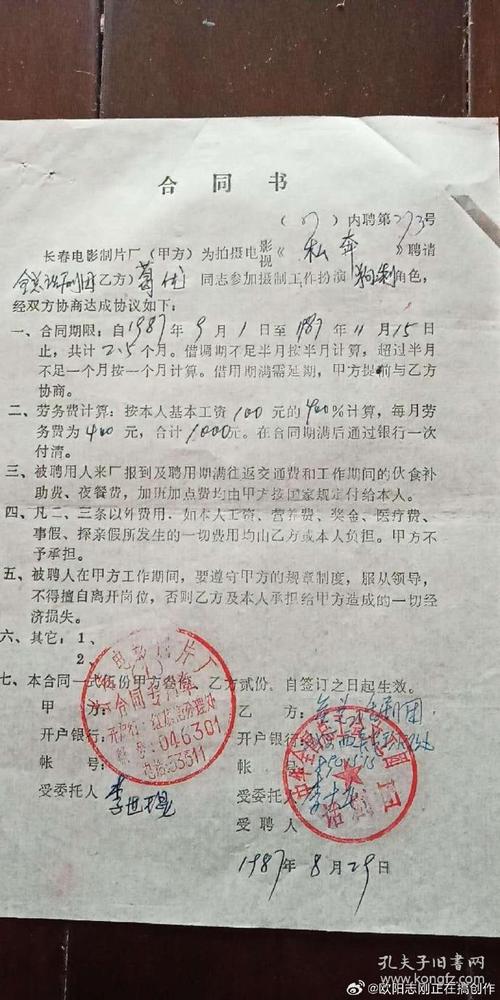 合同书
(87)内聘第273号
长春电影制片厂(甲方)为拍摄电影视《私奔》聘请
全总话剧团乙方)葛优 同志参加摄制工作扮演 角色,
经双方协商达成协议如下:
一、合同期限:自1987年9月1日至1987年11月15日
止,共计2.5个月。借调期不足半月按半月计算,超过半月
不足一个月按一个月计算。借用期满需延期,甲方提前与乙方
协商。
二、劳务费计算:按本人基本工资100元的400%计算,每月劳
务费为400元,合计1000元。在合同期满后通过银行一次
付清。
三、被聘用人来厂报到及聘用期满往返交通费和工作期间的伙食补
助费、夜餐费,加班加点费均由甲方按国家规定付给本人。
四、凡二、三条以外费用,如本人工资、营养费、奖金、医疗费、
事假、探亲假所发生的一切费用均由乙方或本人负担。甲方不
予承担。
五、被聘人在甲方工作期间,要遵守甲方的规章制度,服从领导,
不得擅自离开岗位,否则乙方及本人承担给甲方造成的一切经
济损失。
六、其它:1、
2、
七、本合同一式伍份甲方叁份,乙方贰份,自签订之日起生效。
甲方:
乙方:全总话剧团
开户银行:
开户银行:
帐号:
帐号:
受委托人
受委托人
受聘人
1987年8月29日
电影制片厂
合同专用章
046301
电话53511
话剧团
孔夫子旧书网
www.kongfz.com
@欧阳志刚正在搞创作